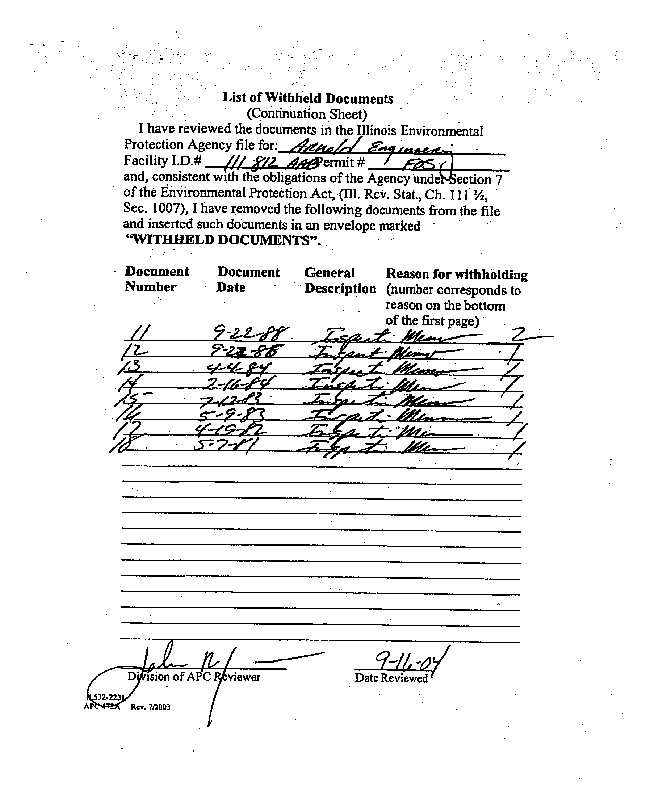 List of Withheld Documents
(Continuation Sheet)
I have reviewed the documents in the Illinois Environmental
Protection Agency file for: Arnold Engineeri
Facility I.D.# 111 812 Permit # FOS
and, consistent with the obligations of the Agency under Section 7
of the Environmental Protection Act, (Ill. Rev. Stat., Ch. 111 ½,
Sec. 1007), I have removed the following documents from the file
and inserted such documents in an envelope marked
"WITHHELD DOCUMENTS".
Document Document General Reason for withholding
Number Date Description (number corresponds to
reason on the bottom
of the first page)
11 9-22-88 Inspect Memo
12 Inspect Memo 1
13 4-4-84 Inspect Memo 1
14 2-16-84 Inspecti Memo
15 7-12-83 Inspecti Memo 1
16 5-9-83 Inspecti Memo 1
17 4-19-82 Inspecti Memo 1
18 5-7-81 Inspecti Memo 1
9-16-04
Division of APC Reviewer Date Reviewed
IL532-2231
APC 472A Rev. 7/2003